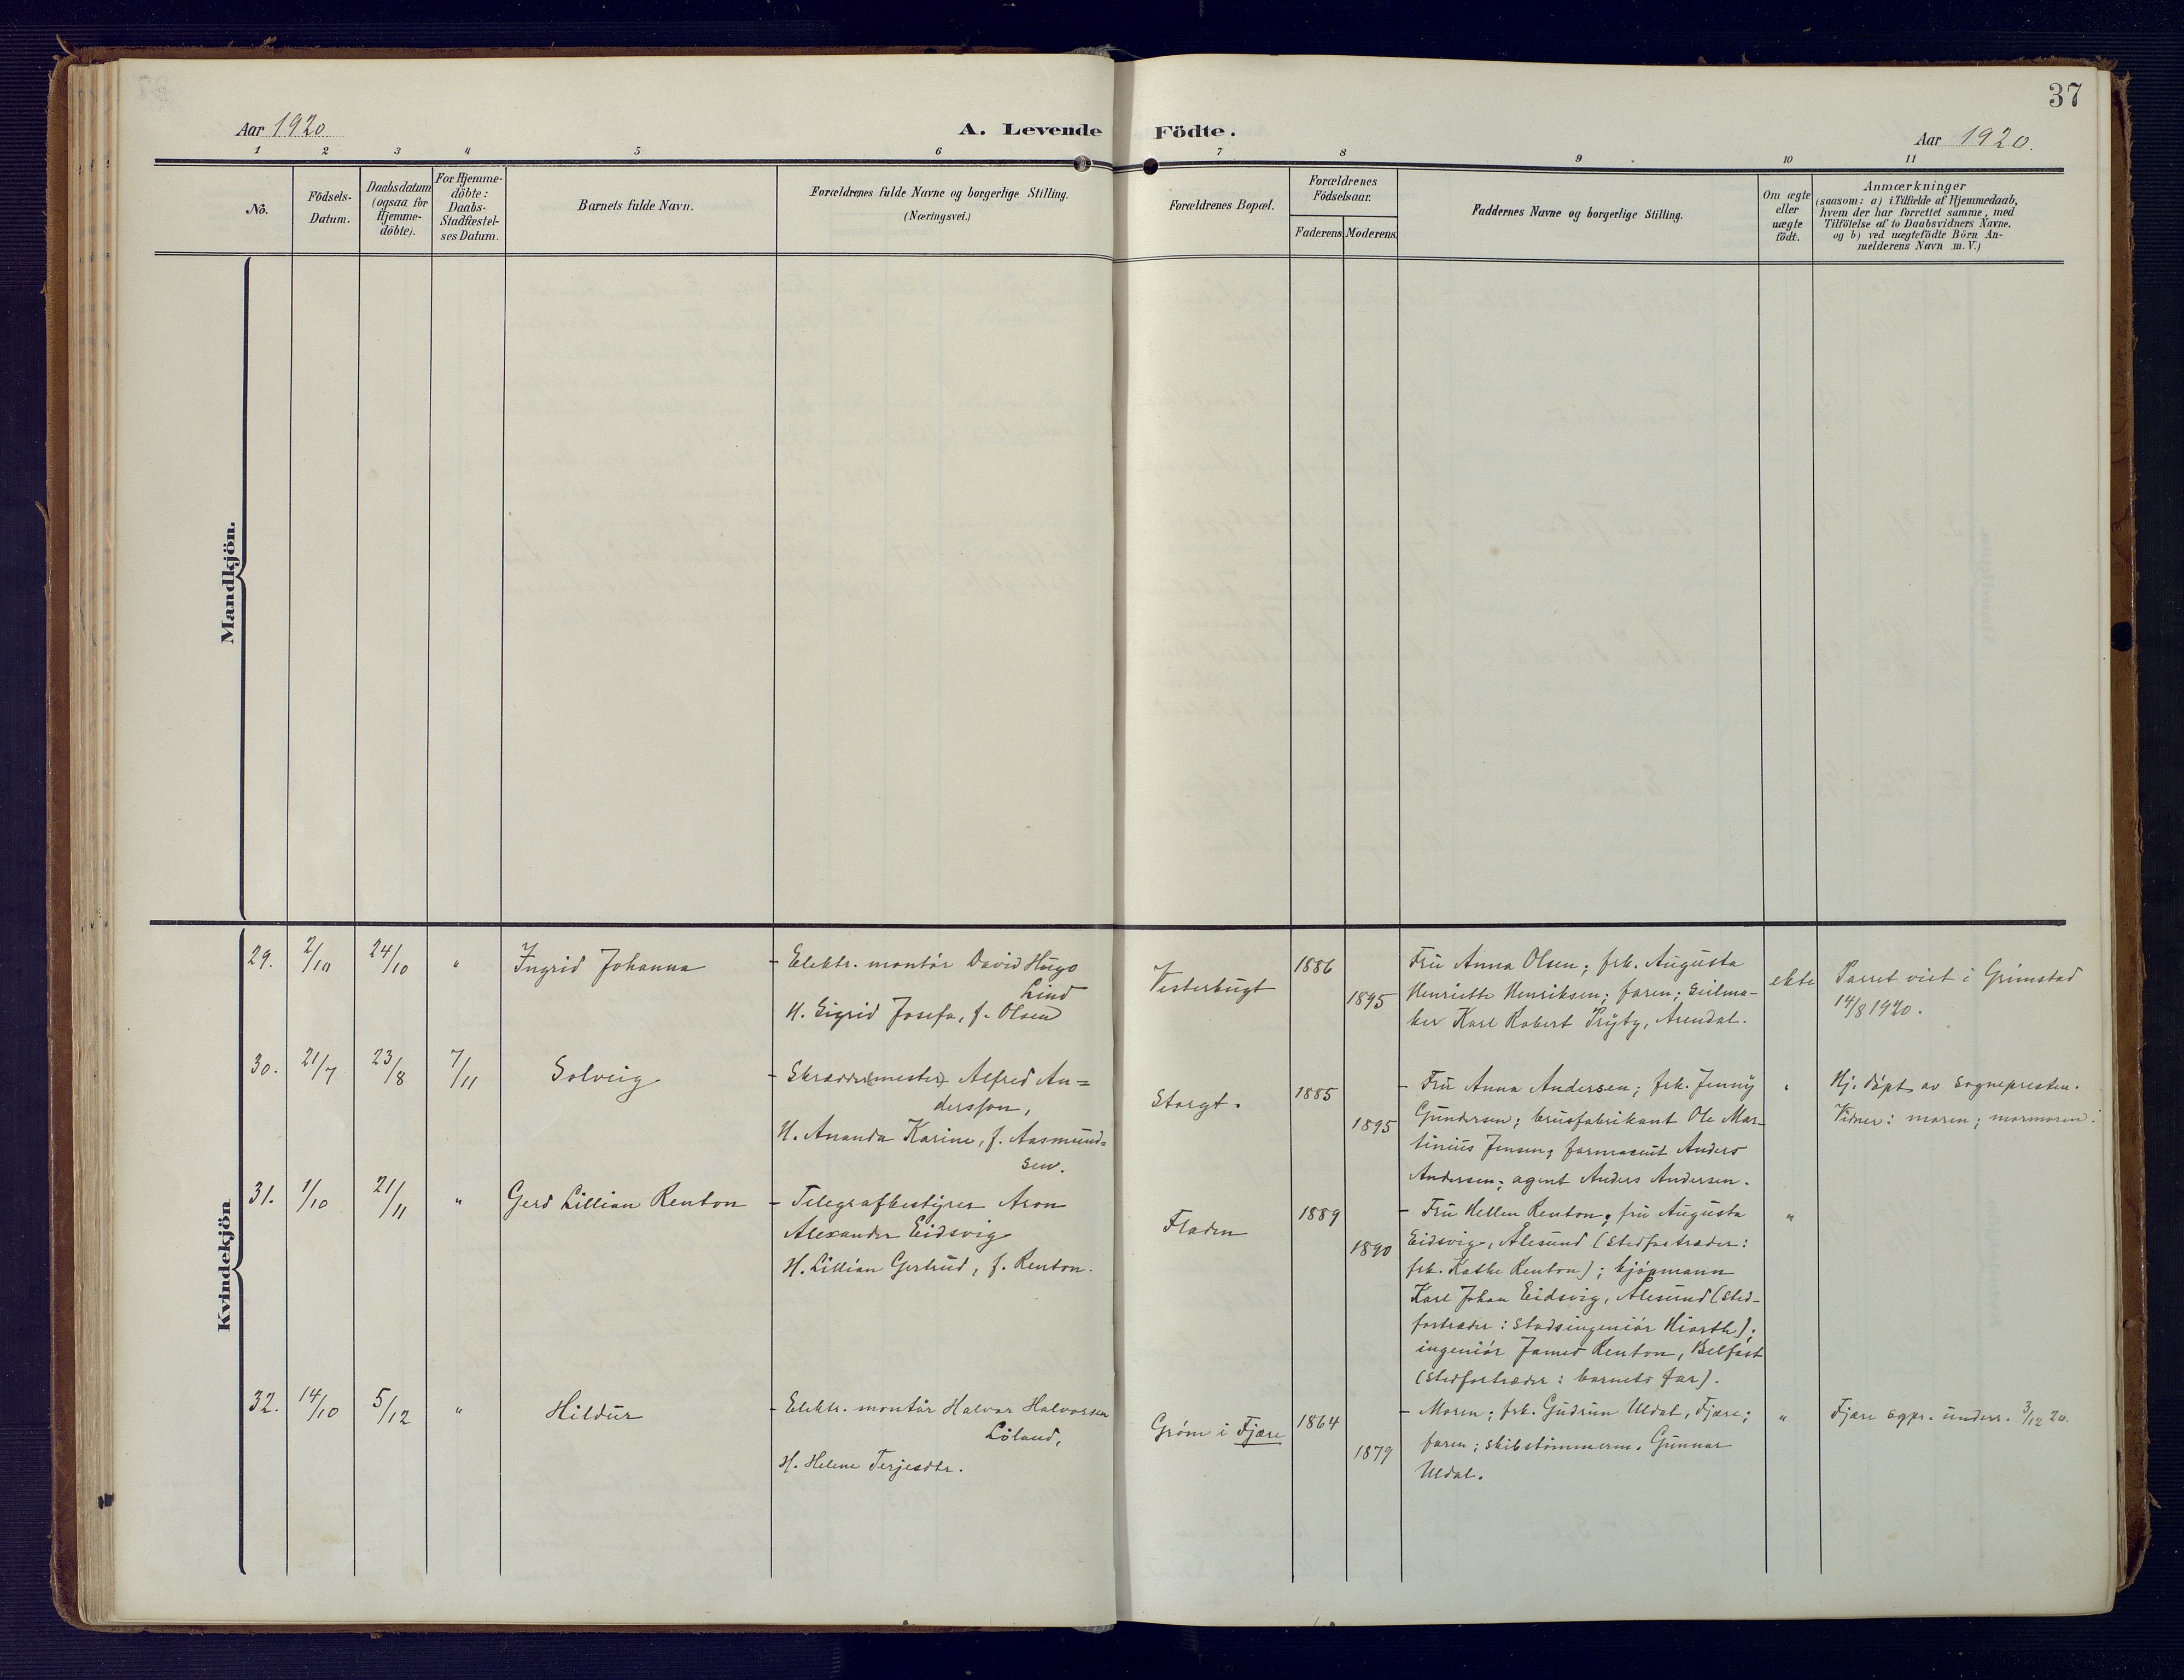 37
Aar 1920.
A. Levende Födte.
Aar 1920.
1 2 3 4 5 6 7 8 9 10 11
No.
Födsels-
Datum.
Daabsdatum
(ogsaa for
Hjemme-
döbte).
For Hjemme-
döbte:
Daabs-
Stadfæstel-
ses Datum.
Barnets fulde Navn.
Forældrenes fulde Navne og borgerlige Stilling.
(Næringsvei.)
Forældrenes Bopæl.
Forældrenes
Födselsaar.
Faderens.
Moderens.
Faddernes Navne og borgerlige Stilling.
Om ægte
eller
uægte
födt.
Anmærkninger
(saasom: a) i Tilfælde af Hjemmedaab,
hvem der har forrettet samme, med
Tilföielse af to Daabsvidners Navne.
og b) ved uægtefödte Börn An-
melderens Navn m. V.)
Mandkjön.
Kvindekjön
29.
2/10
24/10
"
Ingrid Johanna
- Elektr. montör David Hugo
Lind
H. Sigrid Josefa, f. Olsen
Vesterbugt
1886
1895
Fru Anna Olsen; frk. Augusta
Henriette Henriksen; faren; seilma-
ker Karl Robert Prytz, Arendal.
ekte
Parret viet i Grimstad
14/8 1920.
30.
21/7
23/8
7/11
Solveig
- Skrædder(mester) Alfred An=
dersson,
H. Ananda Karine, f. Aasmund=
sen.
Storgt.
1885
1895
- Fru Anna Andersen; frk. Jenny
Gundersen; brusfabrikant Ole Mar-
tinius Jensen; farmaceut Anders
Andersen; agent Anders Andersen.
"
Hj. döpt av sognepresten.
Vidner: moren; mormoren.
31.
1/10
21/11
"
Gerd Lillian Renton
- Telegrafbestyrer Aron
Alexander Eidsvig
H. Lillian Gertrud, f. Renton.
Fladen
1889
1890
- Fru Hellen Renton; fru Augusta
Eidsvig, Ålesund (stedfortræder:
frk. Kathe Renton); kjöpmann
Karl Johan Eidsvig, Ålesund (sted-
fortræder: stadsingeniör Hiorth);
ingeniör James Renton, Belfast
(stedfortræder: barnets far).
"
32.
14/10
5/12
"
Hildur
- Elektr. montör Halvor Halvorsen
Löland,
H. Helene Terjesdtr.
Gröm i Fjære
1864
1879
- Moren; frk. Gudrun Uldal, Fjære;
faren; skibstömmerm. Gunnar
Uldal.
"
Fjære sgpr. underr. 3/12 20.